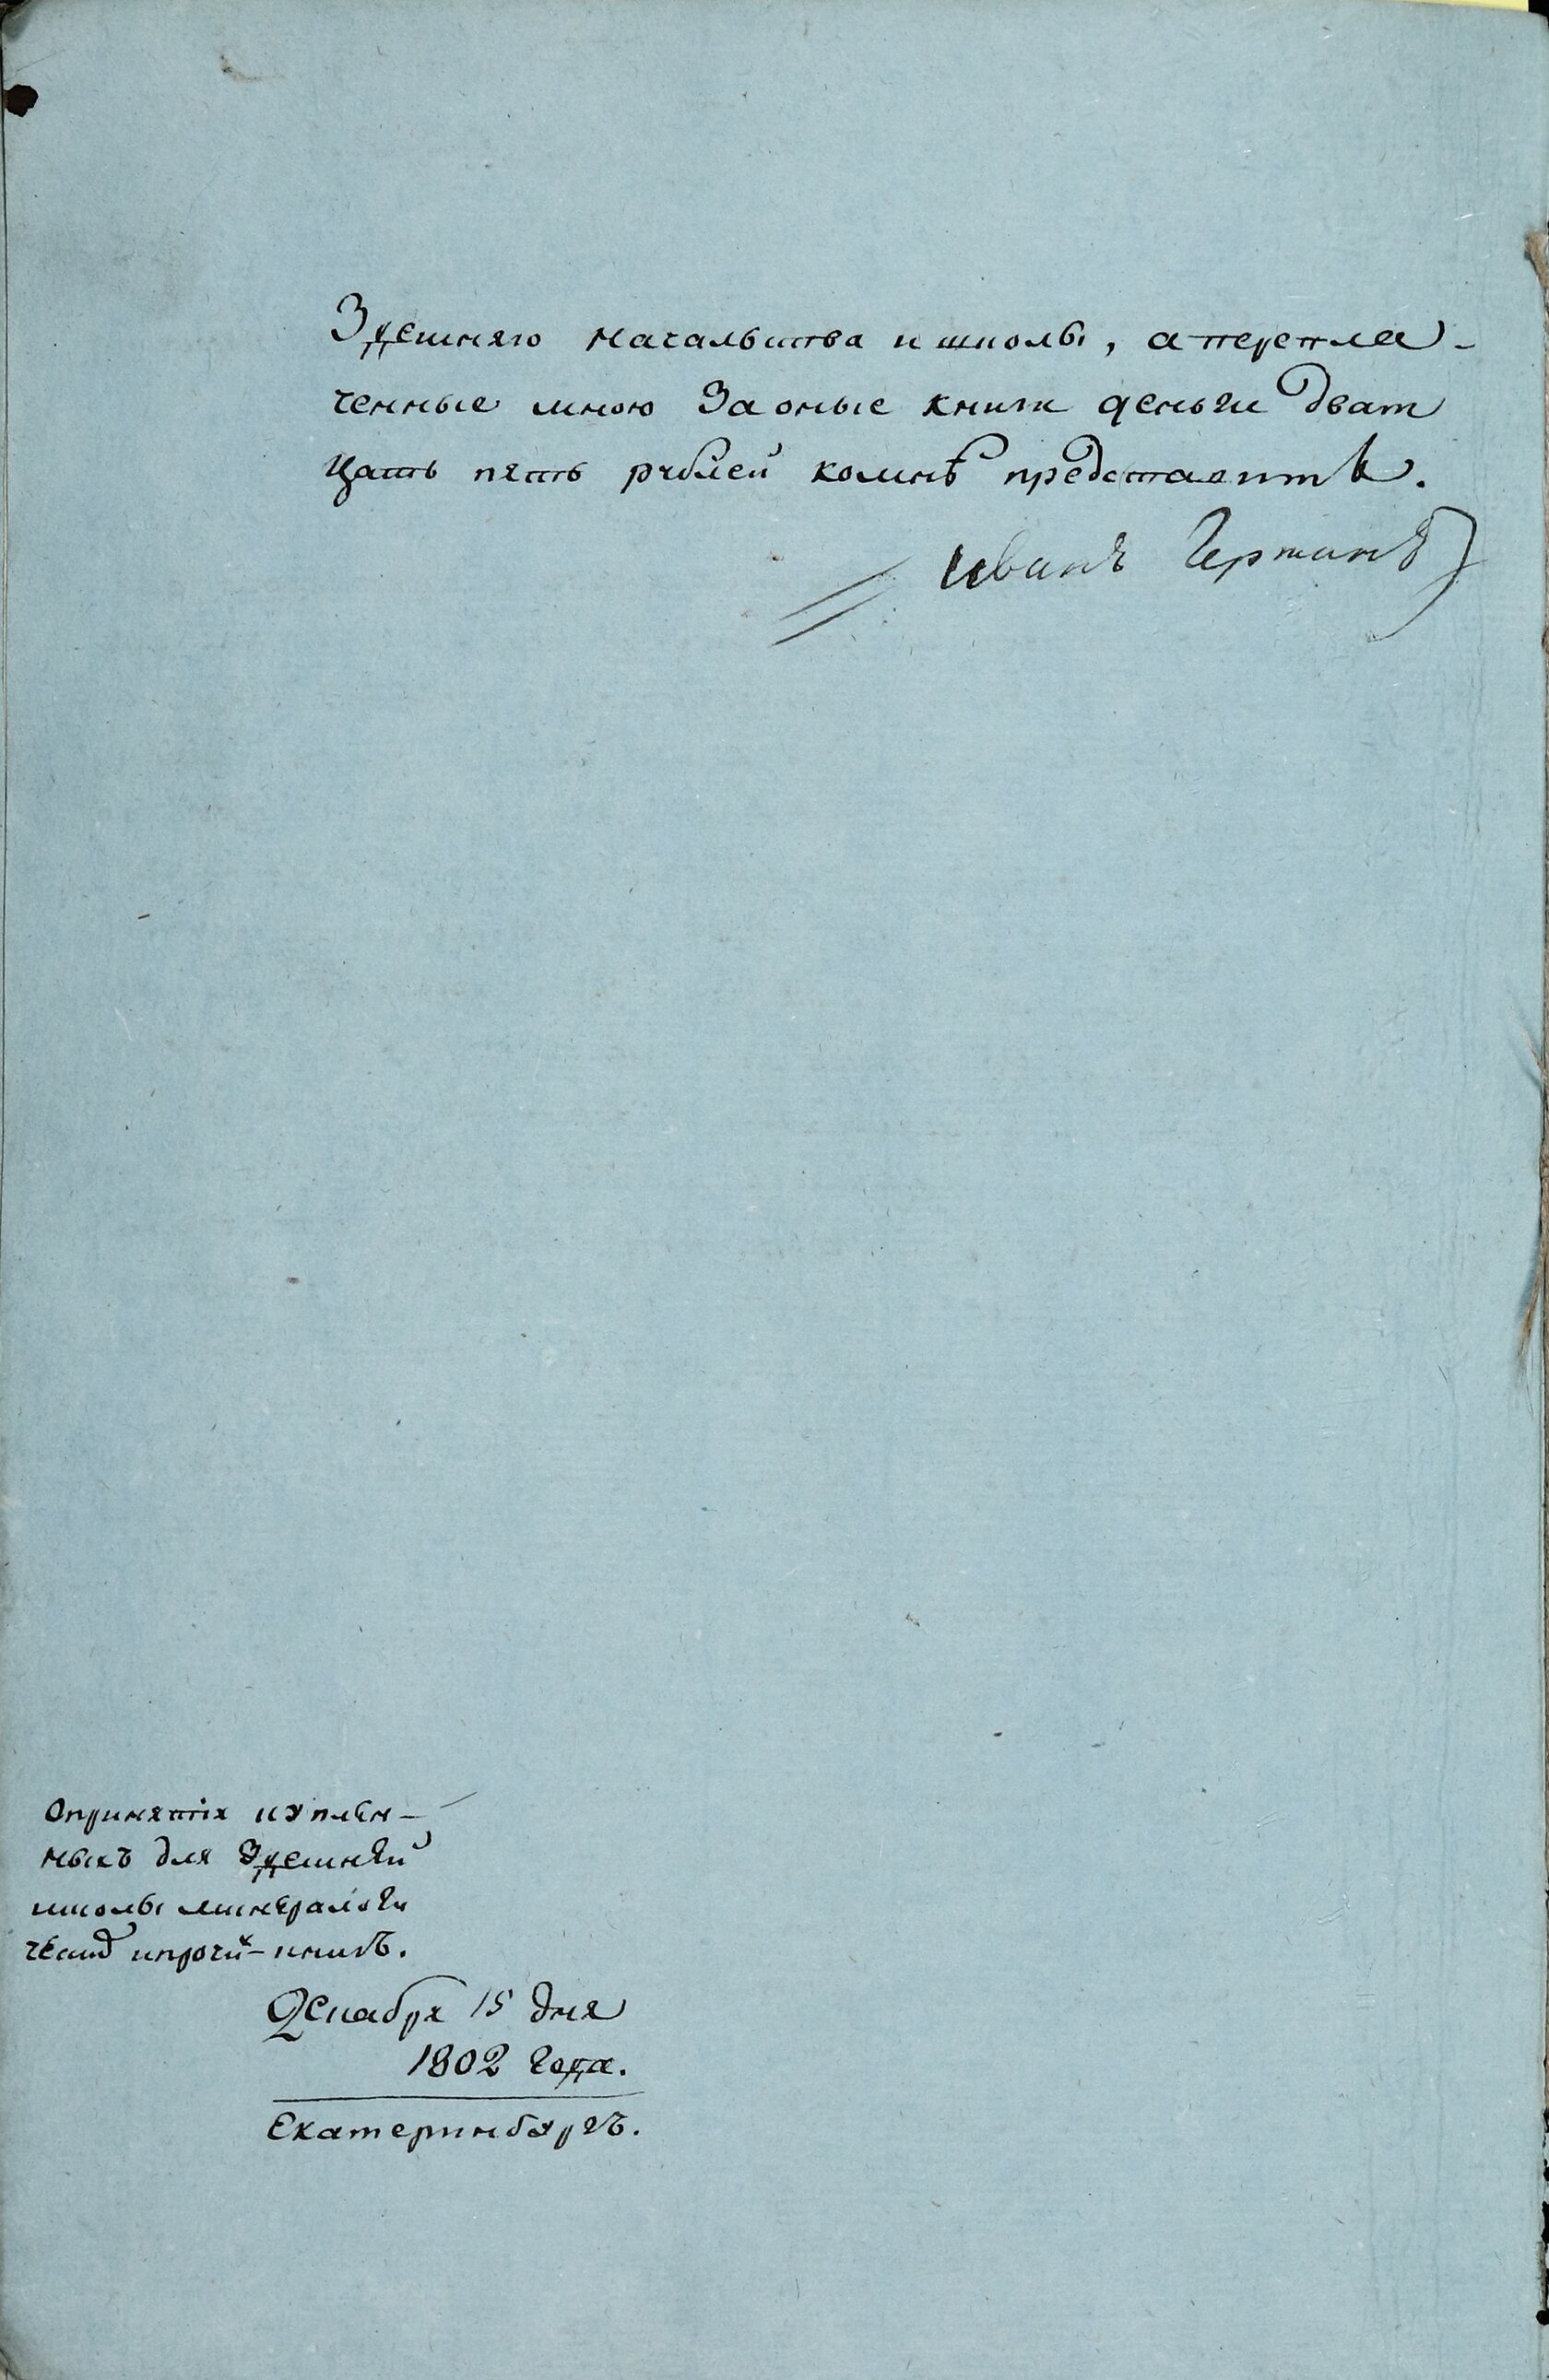 Здешняго начальства и школы, а переπла-
ченные мною за оные книги деньги дват
цать пять рублей комнѣ представить.
Иванъ Германъ
Опринятія куплен-
ныхъ для здешней
школы минералоги
ческ. ипрочих книгъ.
Декабря 15 дня
1802 года.
Екатеринбургъ.